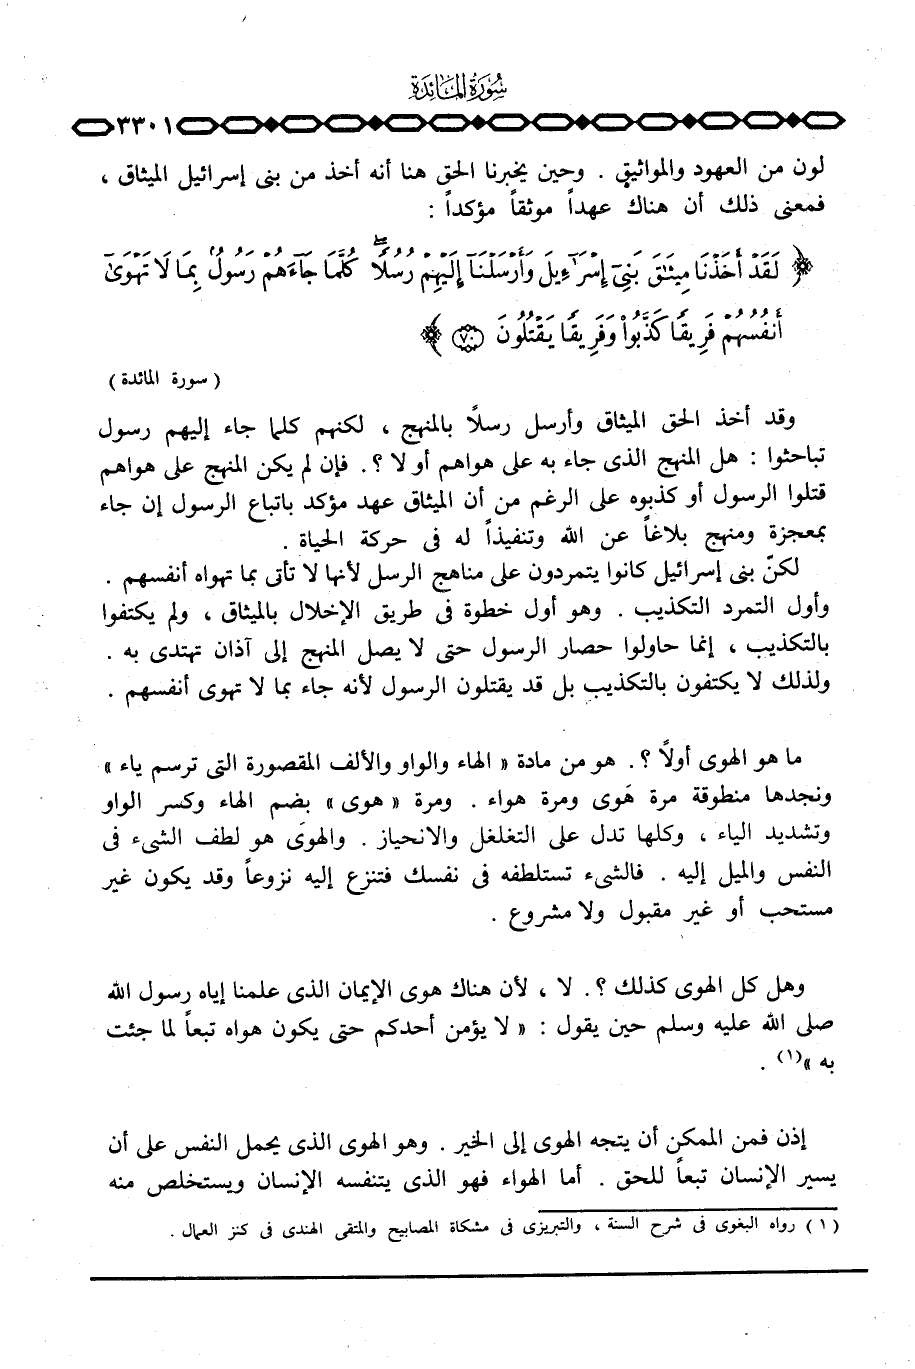 سُورَةُ المَائِدَةِ
٣٣٠١
لون من العهود والمواثيق . وحين يخبرنا الحق هنا أنه أخذ من بنى إسرائيل الميثاق ،
فمعنى ذلك أن هناك عهداً موثقاً مؤكداً :
﴿ لَقَدْ أَخَذْنَا مِيثَٰقَ بَنِىٓ إِسْرَٰٓءِيلَ وَأَرْسَلْنَآ إِلَيْهِمْ رُسُلًاۖ كُلَّمَا جَآءَهُمْ رَسُولٌۢ بِمَا لَا تَهْوَىٰٓ
أَنفُسُهُمْ فَرِيقًا كَذَّبُوا۟ وَفَرِيقًا يَقْتُلُونَ ٧٠ ﴾
( سورة المائدة )
وقد أخذ الحق الميثاق وأرسل رسلاً بالمنهج ، لكنهم كلما جاء إليهم رسول
تباحثوا : هل المنهج الذى جاء به على هواهم أو لا ؟. فإن لم يكن المنهج على هواهم
قتلوا الرسول أو كذبوه على الرغم من أن الميثاق عهد مؤكد باتباع الرسول إن جاء
بمعجزة ومنهج بلاغاً عن الله وتنفيذاً له فى حركة الحياة .
لكنّ بنى إسرائيل كانوا يتمردون على مناهج الرسل لأنها لا تأتى بما تهواه أنفسهم .
وأول التمرد التكذيب . وهو أول خطوة فى طريق الإخلال بالميثاق ، ولم يكتفوا
بالتكذيب ، إنما حاولوا حصار الرسول حتى لا يصل المنهج إلى آذان تهتدى به .
ولذلك لا يكتفون بالتكذيب بل قد يقتلون الرسول لأنه جاء بما لا تهوى أنفسهم .
ما هو الهوى أولاً ؟. هو من مادة « الهاء والواو والألف المقصورة التى ترسم ياء »
ونجدها منطوقة مرة هَوى ومرة هواء . ومرة « هوى » بضم الهاء وكسر الواو
وتشديد الياء ، وكلها تدل على التغلغل والانحياز . والهوَى هو لطف الشىء فى
النفس والميل إليه . فالشىء تستلطفه فى نفسك فتنزع إليه نزوعاً وقد يكون غير
مستحب أو غير مقبول ولا مشروع .
وهل كل الهوى كذلك ؟. لا ، لأن هناك هوى الإيمان الذى علمنا إياه رسول الله
صلى الله عليه وسلم حين يقول : « لا يؤمن أحدكم حتى يكون هواه تبعاً لما جئت
به »(١) .
إذن فمن الممكن أن يتجه الهوى إلى الخير . وهو الهوى الذى يحمل النفس على أن
يسير الإنسان تبعاً للحق . أما الهواء فهو الذى يتنفسه الإنسان ويستخلص منه
( ١ ) رواه البغوى فى شرح السنة ، والتبريزى فى مشكاة المصابيح والمتقى الهندى فى كنز العمال .